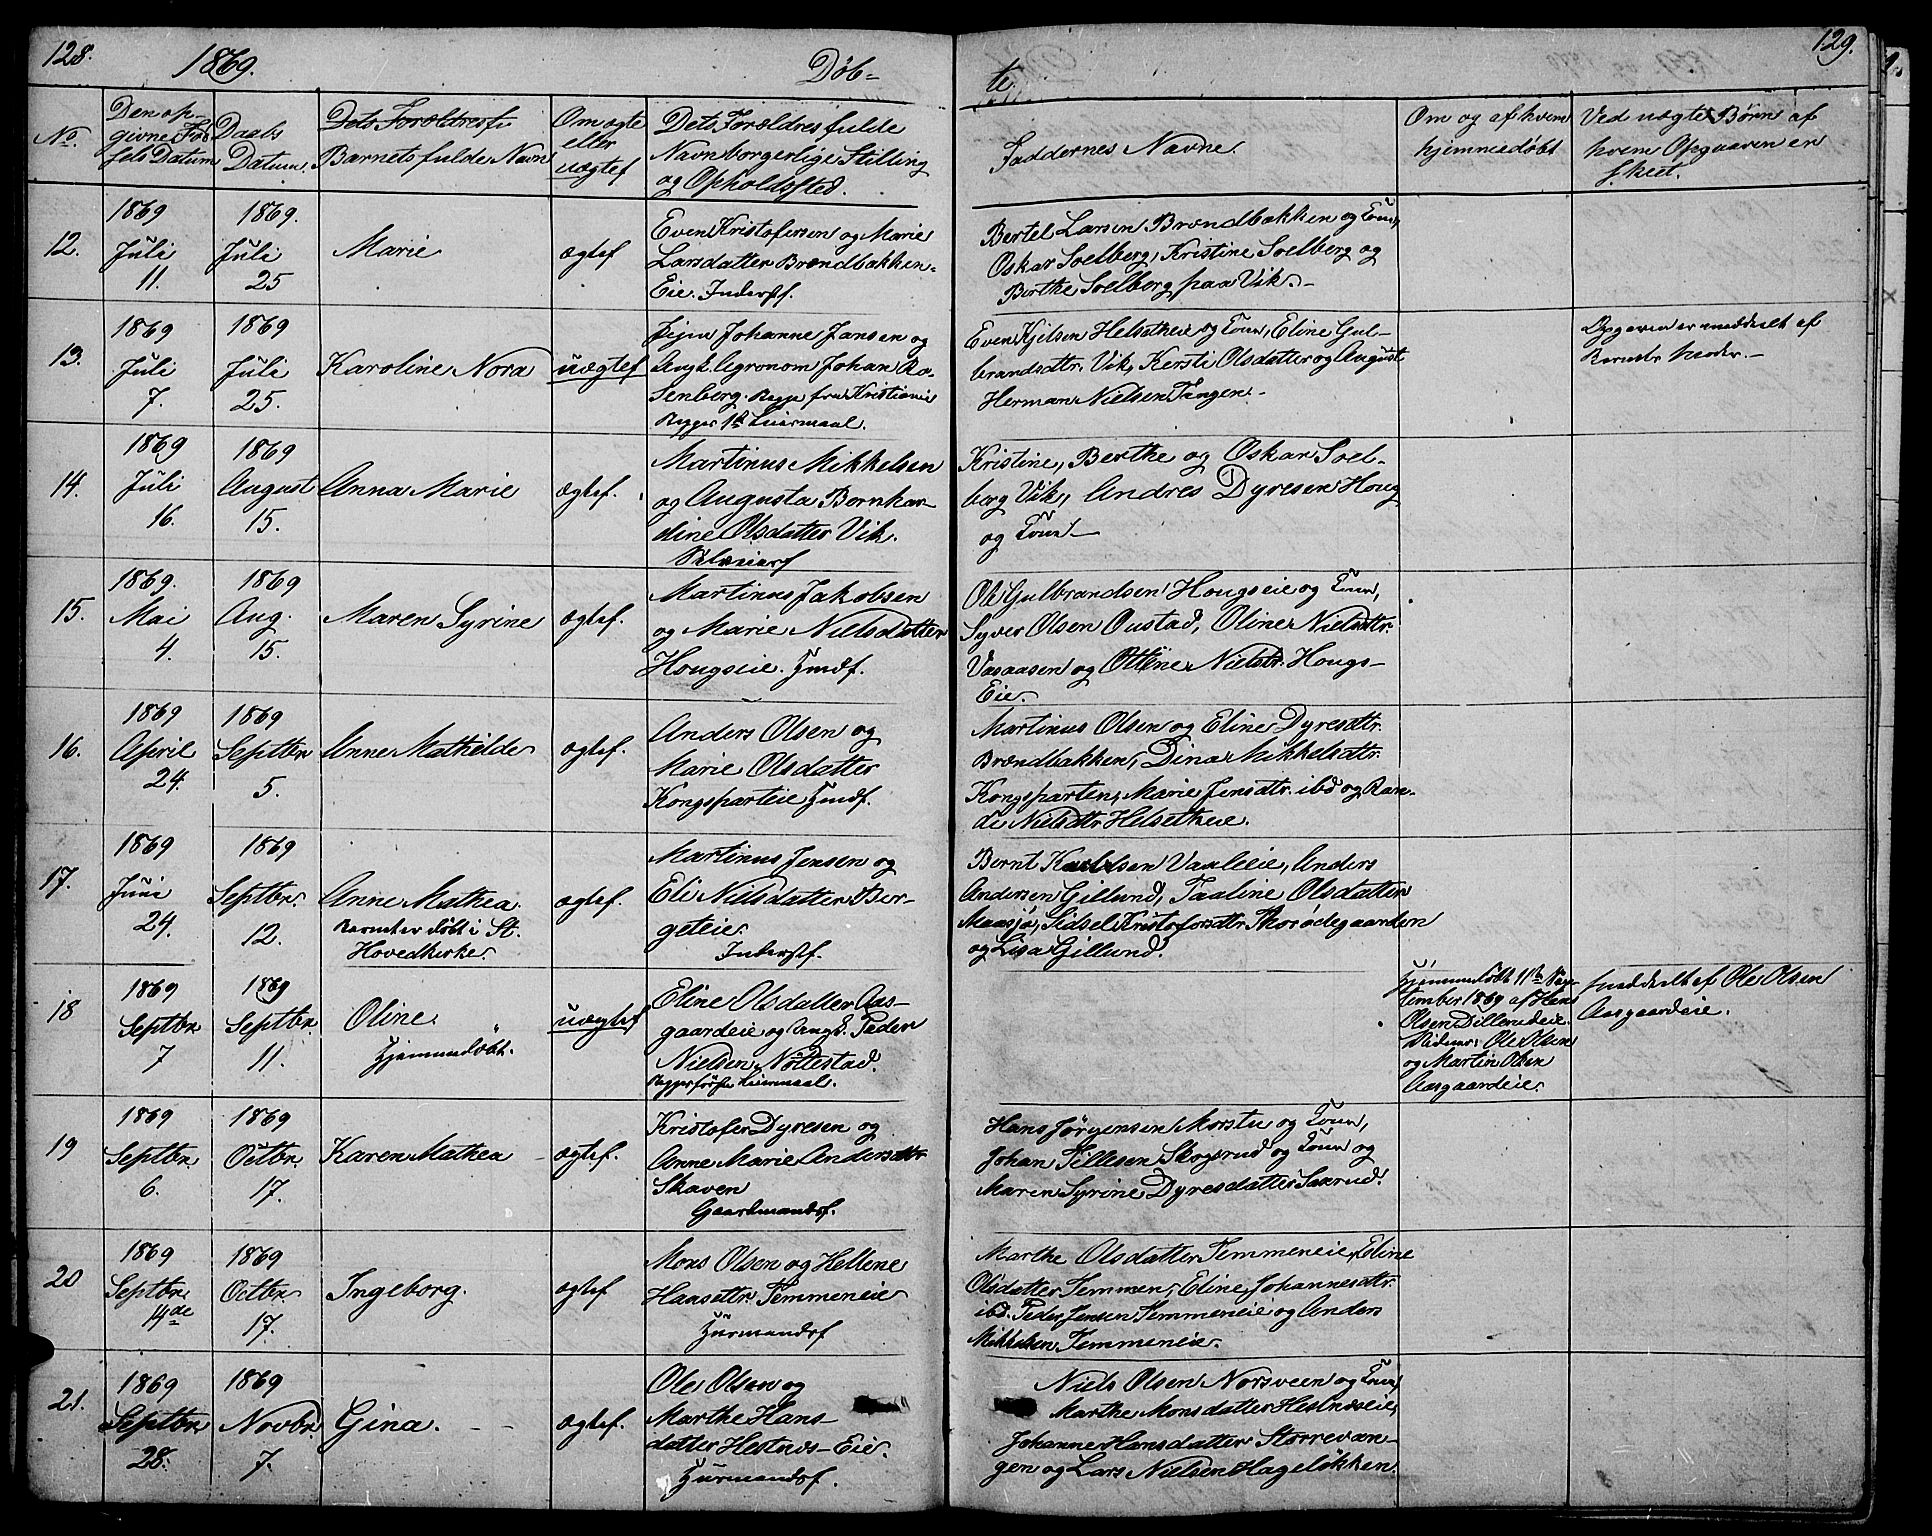 128.
1869.
Døb-
te.
129.
No.
Den op-
givne Fød-
sels Datum
Daabs
Datum.
Dets Forældres fu
Barnets fulde Navn
Om ægte
eller
uægtef
Dets Forældres fulde
Navn borgerlige Stilling
og Opholdssted.
Faddernes Navne
Om og af hvem
hjemmedøbt
Ved uægte Børn af
hvem Opgaaven er
skeet.
12.
1869
Juli
11.
1869.
Juli
25
Marie
ægtef
Even Kristofersen og Marie
Larsdatter Brændbakken-
Eie. Inderstf.
Bertel Larsen Brændbakken og Kone,
Oskar Soelberg, Kristine Soelberg og
Berthe Soelberg paa Vik.-
13.
1869
Juli
7.
1869
Juli
25.
Karoline Nora
uægtef
Pigen Johanne Jansen og
Ungk. Agronom Johan Ro-
senberg. Begge fra Kristiania
Begges 1ste Leiermaal.
Even Kjelsen Helsetheie og Kone, Eline Gul-
brandsdttr. Vik, Kersti Olsdatter og August
Herman Nielsen Tangen.-
Opgaven er meddeelt af
Barnets Moder.-
14.
1869
Juli
16.
1869
August
15.
Anna Marie
ægtef.
Martinus Mikkelsen
og Augusta Bernhar-
dine Olsdatter Vik.
Selveierf
Kristine, Berthe og Oskar Soel-
berg Vik, Andres Dyresen Houg
og Kone.-
15.
1869.
Mai
4.
1869
Aug.
15.
Maren Syrine
ægtef.
Martinus Jakobsen
og Marie Nielsdatter
Hougseie. Hmdf.
Ole Gulbrandsen Hougseie og Kone,
Syver Olsen Oustad, Oline Nielsdttr.
Vasaasen og Olline Nielsdtr. Hougs-
Eie.
16.
1869
April
24.
1869
Septbr.
5.
Anne Mathilde
ægtef.
Anders Olsen og
Marie Olsdatter
Kongsparteie Hmdf.
Martinus Olsen og Eline Dyresdttr.
Brændbakken, Dina Mikkelsdttr.
Kongsparten, Marie Jensdttr. ibd og Ran-
di Nielsdttr Helsetheie.
17.
1869
Juni
24.
1869
Septbr.
12.
Anne Mathea.
Barnet er døbt i St.
Hovedkirke
ægtef.
Martinus Jensen og
Eli Nielsdatter Ber-
geteie.
Inderstf.
Bernt Karlsen Vaaleie, Anders
Andersen Gillund, Paaline Olsdatter
Maasjø, Sidsel Kristofersdttr Skorødegaarden
og Lisa Gillund.
18
1869
Septbr
7
1869
Septbr.
11.
Oline.
Hjemmedøbt.
uægtef
Eline Olsdatter Aas-
gaardeie og Ungk. Peder
Nielsen Nøttestad.
Begges første Leiermaal.
Hjemmedøbt 11te Sep-
tember 1869 af Hans
Olsen Dillerudeie.
Vidner: Ole Olsen
og Martin Olsen
Aasgaardeie.
meddeelt af Ole Olsen
Aasgaardeie.
19
1869
Septbr.
6.
1869
Octbr.
17.
Karen Mathea
ægtef.
Kristofer Dyresen og
Anne Marie Andersdttr
Skaven
Gaardmandsf.
Hans Jørgensen Morstu og Kone,
Johan Pillesen Skogsrud og Kone og
Maren Syrine Dyresdatter Saxrud.
20
1869
Septbr.
14de
1869
Octbr.
17.
Ingeborg.
ægtef
Mons Olsen og Hellene
Hansdttr. Temmeneie
Huusmandsf
Marthe Olsdatter Temmeneie, Eline
Olsdatter Temmen, Eline Johannesdttr.
ibd. Peder Jensen Temmeneie og Anders
Mikkelsen Temmeneie.
21.
1869
Septbr
28.
1869
Novbr.
7.
Gina.
ægtef.
Ole Olsen og
Marthe Hans-
datter Hestnes-Eie.
Huusmandsf.
Niels Olsen Norsveen og Kone,
Marthe Monsdatter Hestnæseie,
Johanne Hansdatter Storrevæn-
gen og Lars Nielsen Hageløkken.